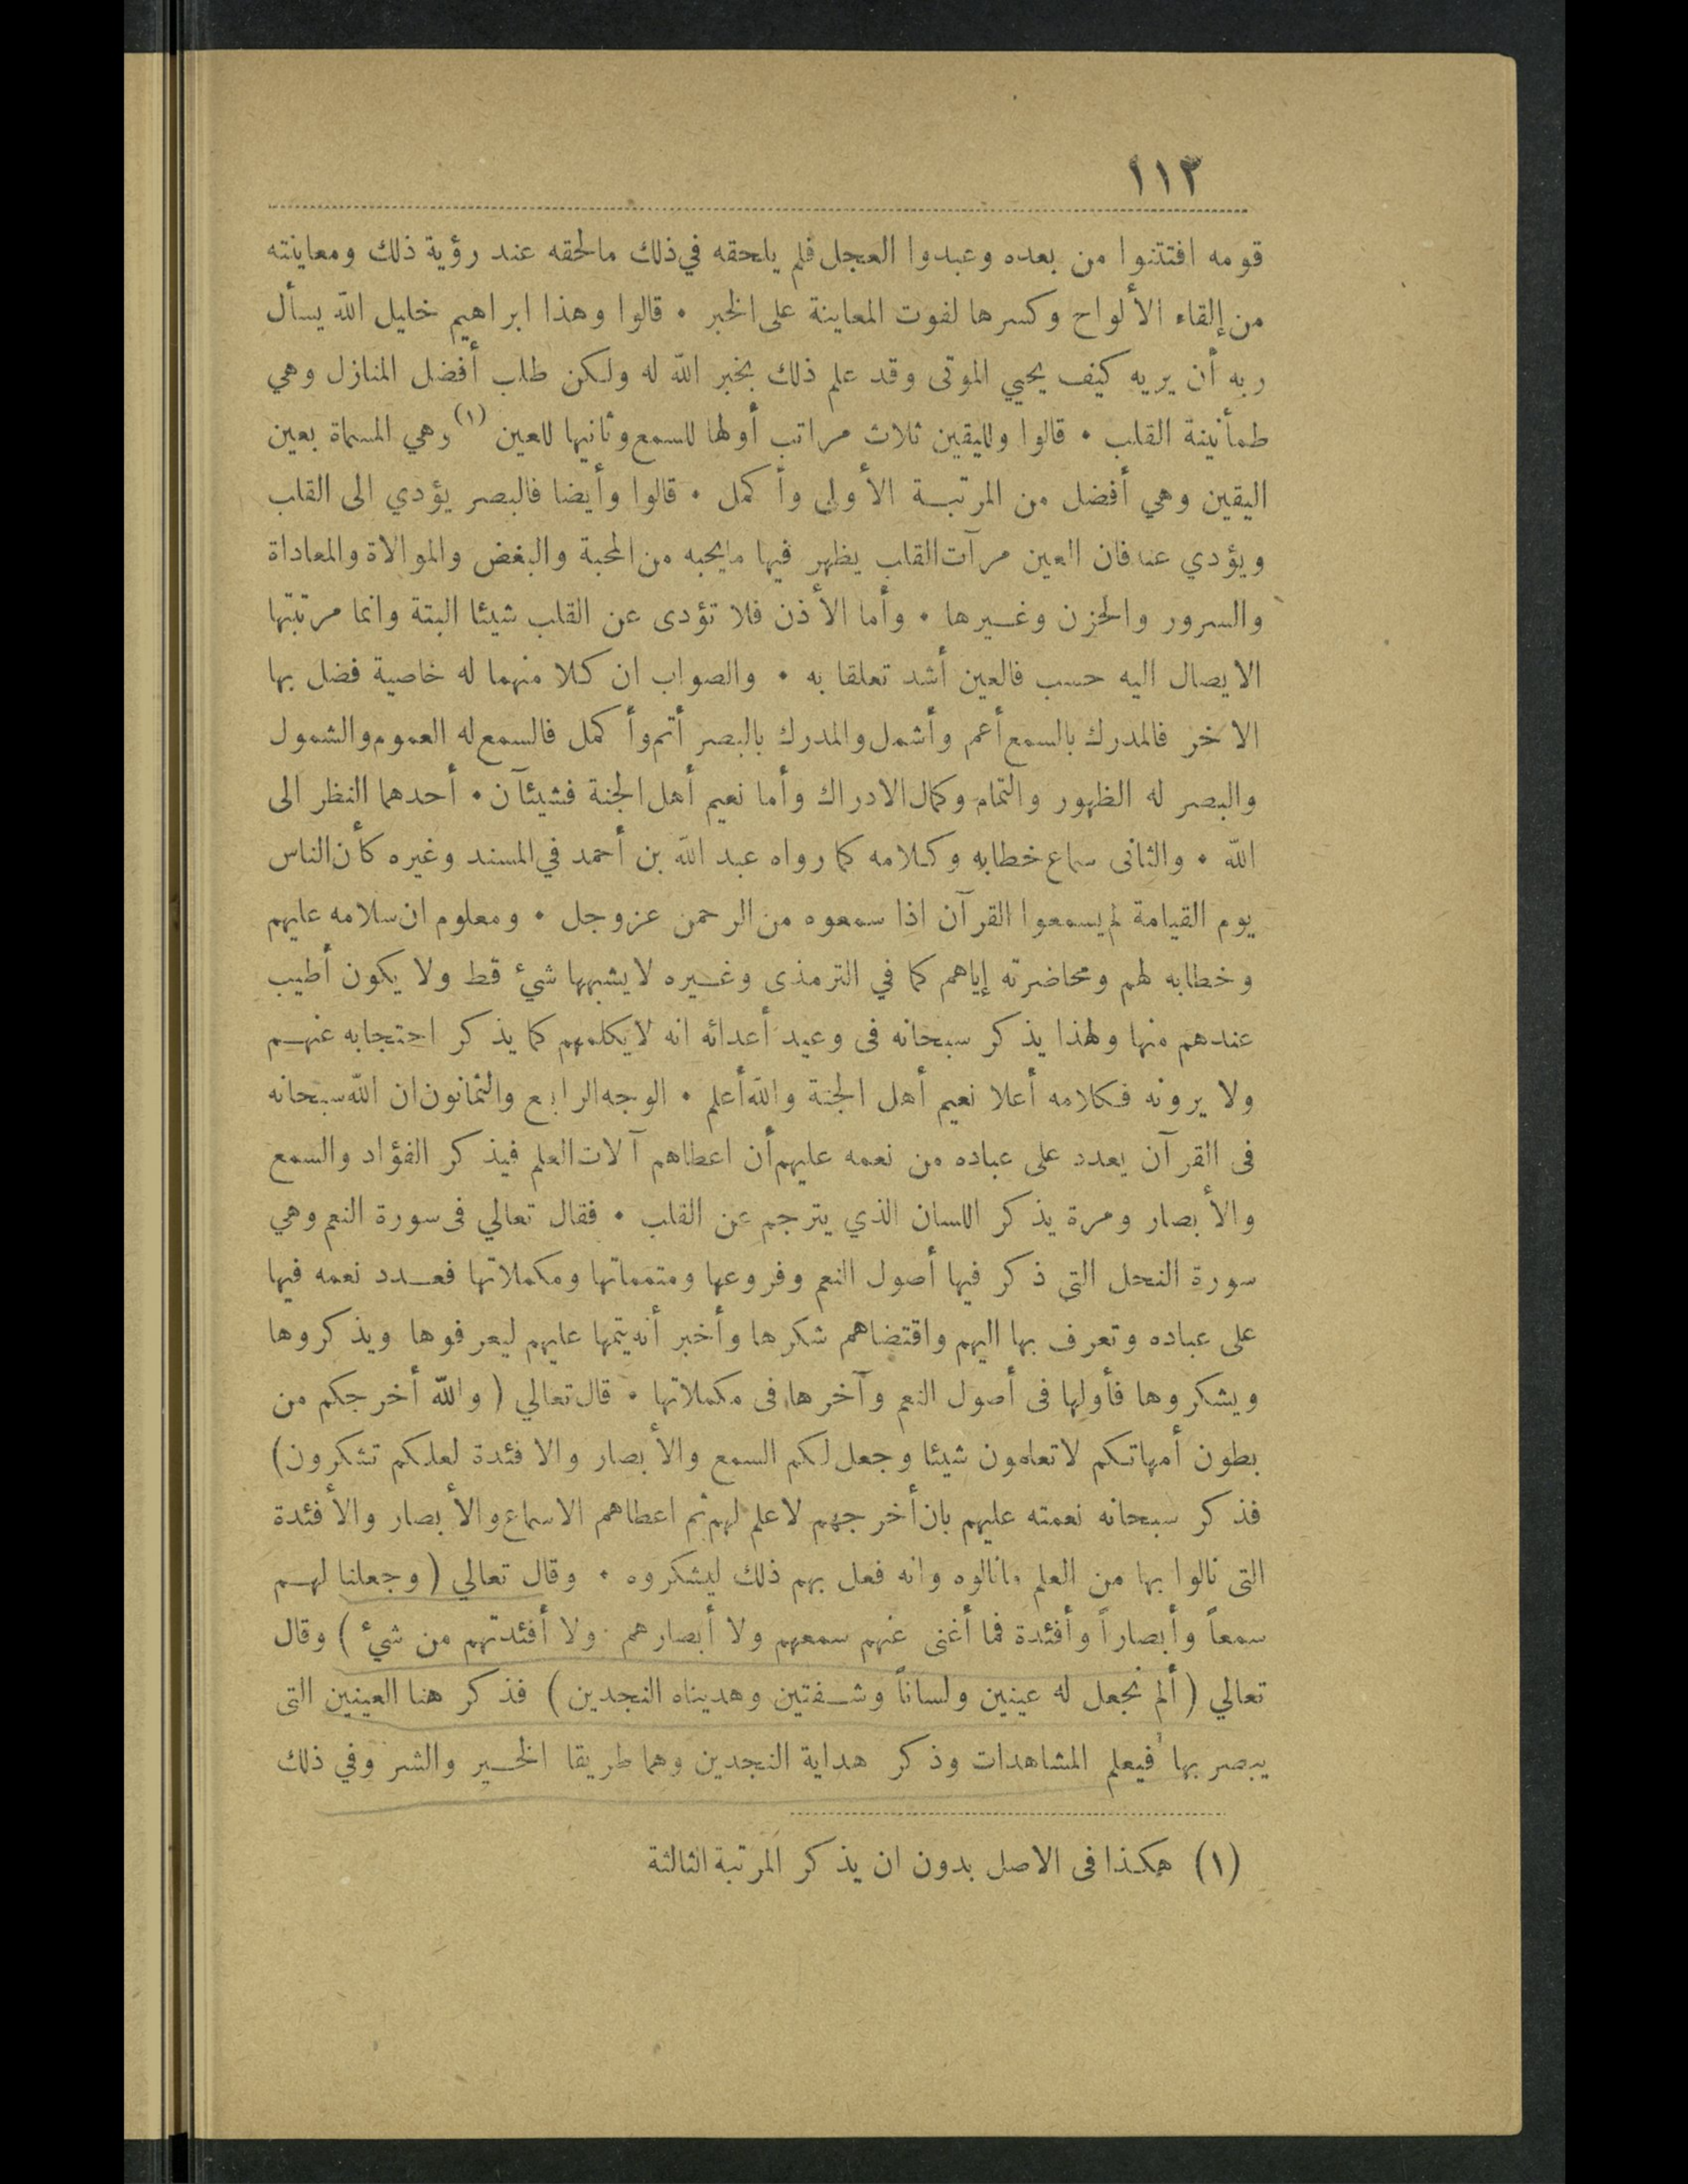 ١١٣
قومه افتتنوا من بعده وعبدوا العجل فلم يلحقه في ذلك مالحقه عند رؤية ذلك ومعاينته
من إلقاء الألواح وكسرها لفوت المعاينة على الخبر • قالوا وهذا ابراهيم خليل الله يسأل
ربه أن يريه كيف يحيي الموتى وقد علم ذلك بخبر الله له ولكن طلب أفضل المنازل وهي
طمأنينة القلب • قالوا ولليقين ثلاث مراتب أولها للسمع وثانيها للعين (١) وهي المسماة بعين
اليقين وهي أفضل من المرتبة الأولى وأكمل • قالوا وأيضا فالبصر يؤدي الى القلب
ويؤدي عنه فان العين مرآت القلب يظهر فيها مايحبه من المحبة والبغض والموالاة والمعاداة
والسرور والحزن وغيرها • وأما الأذن فلا تؤدى عن القلب شيئا البتة وانما مرتبتها
الايصال اليه حسب فالعين أشد تعلقا به • والصواب ان كلا منهما له خاصية فضل بها
الاخر فالمدرك بالسمع أعم وأشمل والمدرك بالبصر أتم وأكمل فالسمع له العموم والشمول
والبصر له الظهور والتمام وكمال الادراك وأما نعيم أهل الجنة فشيئآن • أحدهما النظر الى
الله • والثانى سماع خطابه وكلامه كما رواه عبد الله بن أحمد في المسند وغيره كأن الناس
يوم القيامة لم يسمعوا القرآن اذا سمعوه من الرحمن عزوجل • ومعلوم ان سلامه عليهم
وخطابه لهم ومحاضرته إياهم كما في الترمذى وغيره لايشبهها شيء قط ولا يكون أطيب
عندهم منها ولهذا يذكر سبحانه فى وعيد أعدائه انه لايكلمهم كما يذكر احتجابه عنهم
ولا يرونه فكلامه أعلا نعيم أهل الجنة والله أعلم • الوجه الرابع والثمانون ان الله سبحانه
فى القرآن يعدد على عباده من نعمه عليهم أن اعطاهم آلات العلم فيذكر الفؤاد والسمع
والأبصار ومرة يذكر اللسان الذي يترجم عن القلب • فقال تعالي فى سورة النعم وهي
سورة النحل التي ذكر فيها أصول النعم وفروعها ومتمماتها ومكملاتها فعدد نعمه فيها
على عباده وتعرف بها اليهم واقتضاهم شكرها وأخبر أنه يتمها عليهم ليعرفوها ويذكروها
ويشكروها فأولها فى أصول النعم وآخرها فى مكملاتها • قال تعالي ( والله أخرجكم من
بطون أمهاتكم لاتعلمون شيئا وجعل لكم السمع والأبصار والافئدة لعلكم تشكرون)
فذكر سبحانه نعمته عليهم بان أخرجهم لاعلم لهم ثم اعطاهم الاسماع والأبصار والأفئدة
التى نالوا بها من العلم مانالوه وانه فعل بهم ذلك ليشكروه • وقال تعالي ( وجعلنا لهم
سمعاً وأبصاراً وأفئدة فما أغنى عنهم سمعهم ولا أبصارهم ولا أفئدتهم من شيء ) وقال
تعالي ( ألم نجعل له عينين ولساناً وشفتين وهديناه النجدين ) فذكر هنا العينين التى
يبصر بها فيعلم المشاهدات وذكر هداية النجدين وهما طريقا الخير والشر وفي ذلك
(١) هكذا فى الاصل بدون ان يذكر المرتبة الثالثة